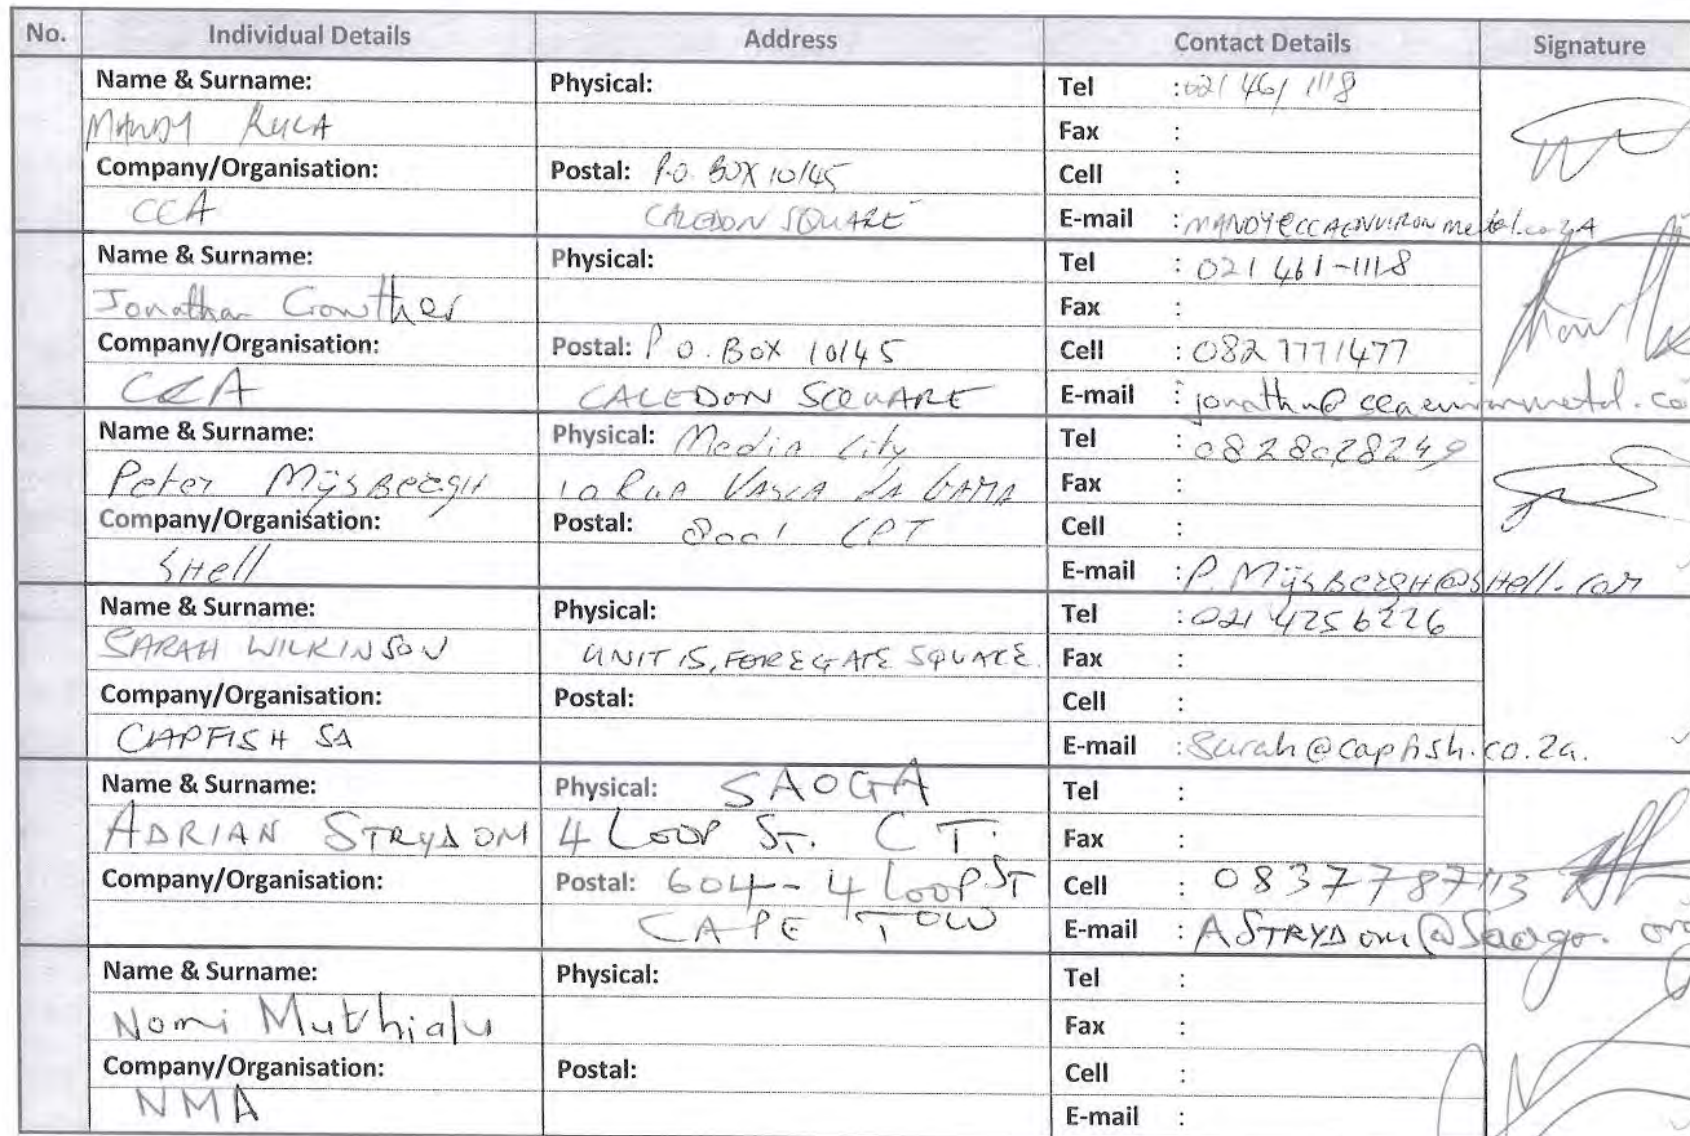 No. Individual Details Address Contact Details Signature
Name & Surname: Physical: Tel : 021 461 1118
MANDY KULA Fax :
Company/Organisation: Postal: P.O. BOX 10145 Cell :
CCA CALEDON SQUARE E-mail : MANDY@CCAENVIRONmetal.co.zA
Name & Surname: Physical: Tel : 021 461-1118
Jonathan Crowther Fax :
Company/Organisation: Postal: P O. BOX 10145 Cell : 082 7771477
CCA CALEDON SQUARE E-mail : jonathan@ccaenvironmetal.co
Name & Surname: Physical: Media City Tel : 0828028249
Peter MijsBergh 10 Rua VASCA DA GAMA Fax :
Company/Organisation: Postal: 8001 CPT Cell :
SHell E-mail : P.MijsBergH@SHell.com
Name & Surname: Physical: Tel : 021 4256226
SARAH WILKINSON UNIT 15, FOREGATE SQUARE. Fax :
Company/Organisation: Postal: Cell :
CAPFISH SA E-mail : Sarah@capfish.co.za.
Name & Surname: Physical: SAOGA Tel :
ADRIAN STRYDOM 4 LOOP ST. CT. Fax :
Company/Organisation: Postal: 604-4 LOOP ST Cell : 0837787113
CAPE TOW E-mail : ASTRYDom@Saoga.org
Name & Surname: Physical: Tel :
Nomi Muthialu Fax :
Company/Organisation: Postal: Cell :
NMA E-mail :